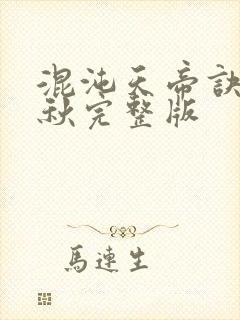 混沌天帝訣
秋完整版
馬連生